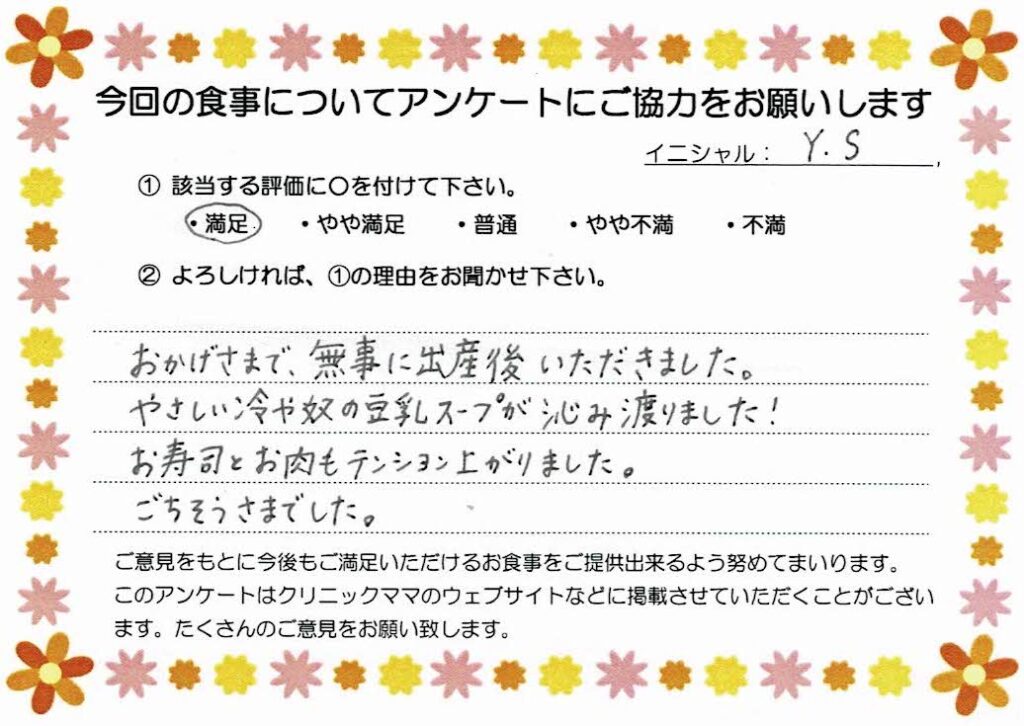 今回の食事についてアンケートにご協力をお願いします
イニシャル： Y. S
① 該当する評価に〇を付けて下さい。
・満足 ・やや満足 ・普通 ・やや不満 ・不満
② よろしければ、①の理由をお聞かせ下さい。
おかげさまで、無事に出産後いただきました。
やさしい冷や奴の豆乳スープが沁み渡りました！
お寿司とお肉もテンション上がりました。
ごちそうさまでした。
ご意見をもとに今後もご満足いただけるお食事をご提供出来るよう努めてまいります。
このアンケートはクリニックママのウェブサイトなどに掲載させていただくことがござい
ます。たくさんのご意見をお願い致します。